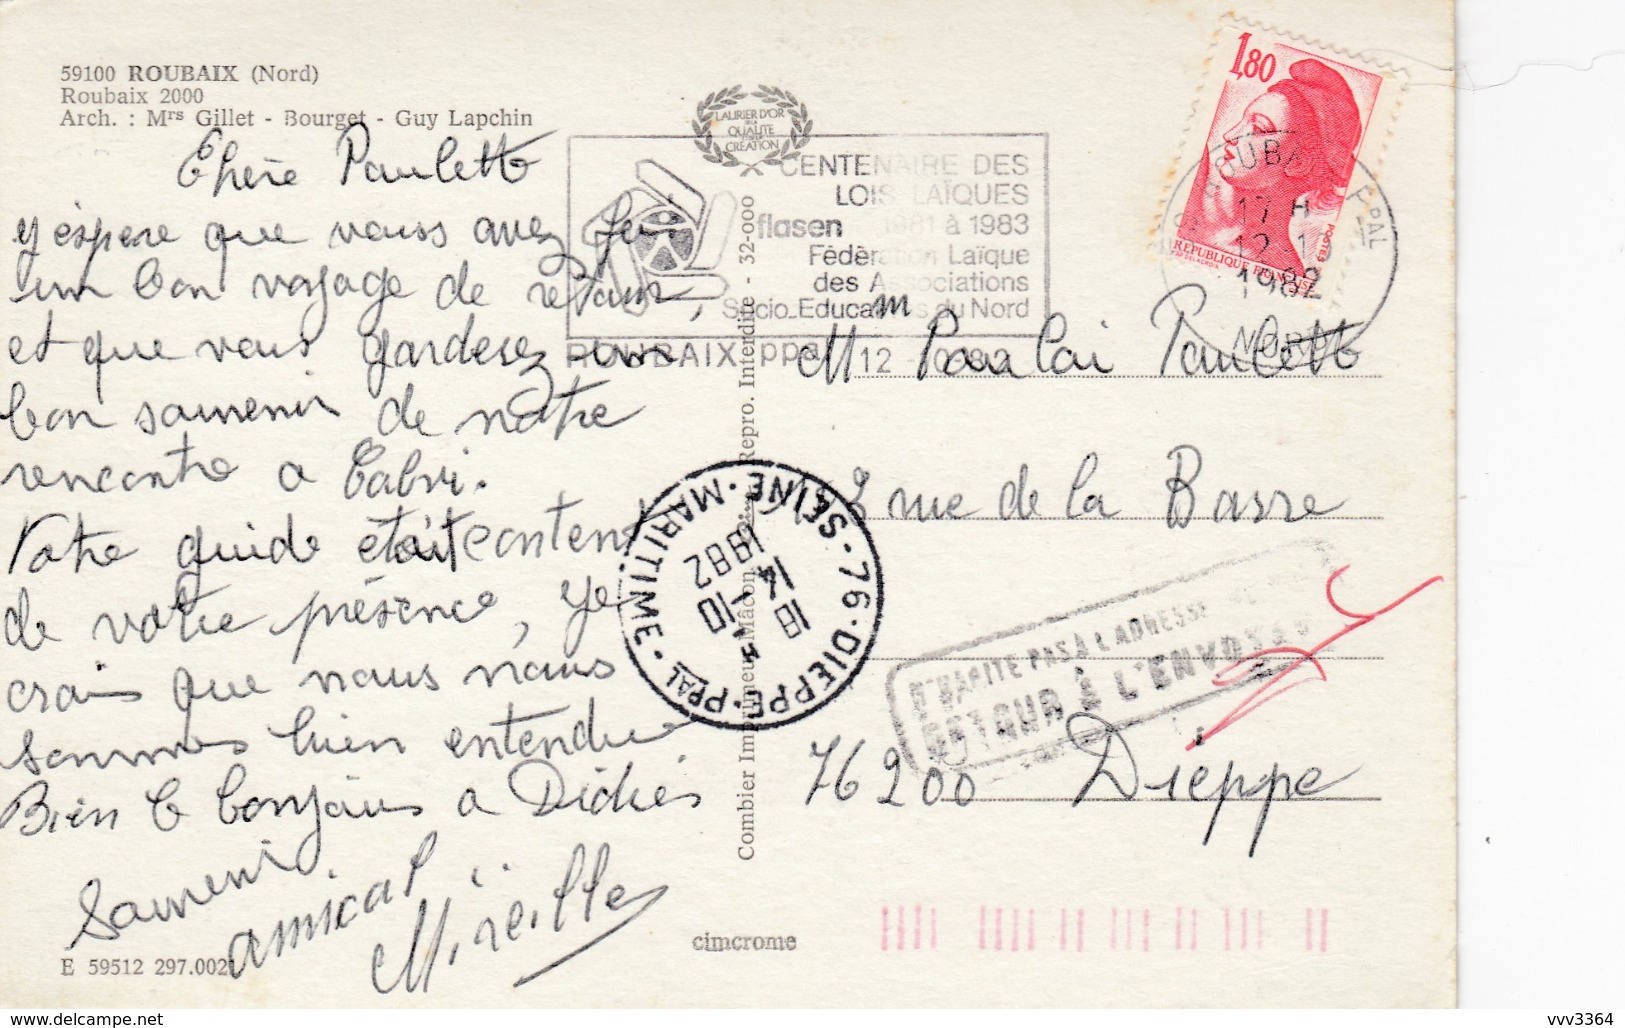 59100 ROUBAIX (Nord)
Roubaix 2000
Arch. : Mrs Gillet - Bourget - Guy Lapchin
Chère Paulett
y éspere que vous avez fai
um bon voyage de retour,
et que vous garderez un
bon souvenir de notre
rencontre a Calvi.
Votre guide était content
de votre présence, ye
crois que nous nous
sommes bien entendue
Bien le bonjour a Didier
Souvenir
amical
Mireille
E 59512 297.0021
LAURIER D'OR
DE LA
QUALITE
CREATION
CENTENAIRE DES
LOIS LAÏQUES
flasen 1981 à 1983
Fédération Laïque
des Associations
Socio-Educatives du Nord
ROUBAIX ppal 12 1982
Combier Imprimeur Mâcon Repro. Interdite - 32-000
cimcrome
1,80
REPUBLIQUE FRANÇAISE
POSTES
ROUBAIX PPAL
17 H
12-10
1982
NORD
76 · DIEPPE · PPAL
18 H
14-10
1982
SEINE-MARITIME
Mm Paulett
rue de la Barre
N'HABITE PAS À L'ADRESSE
RETOUR À L'ENVOYEUR
76200 Dieppe
www.delcampe.net
vvv3364